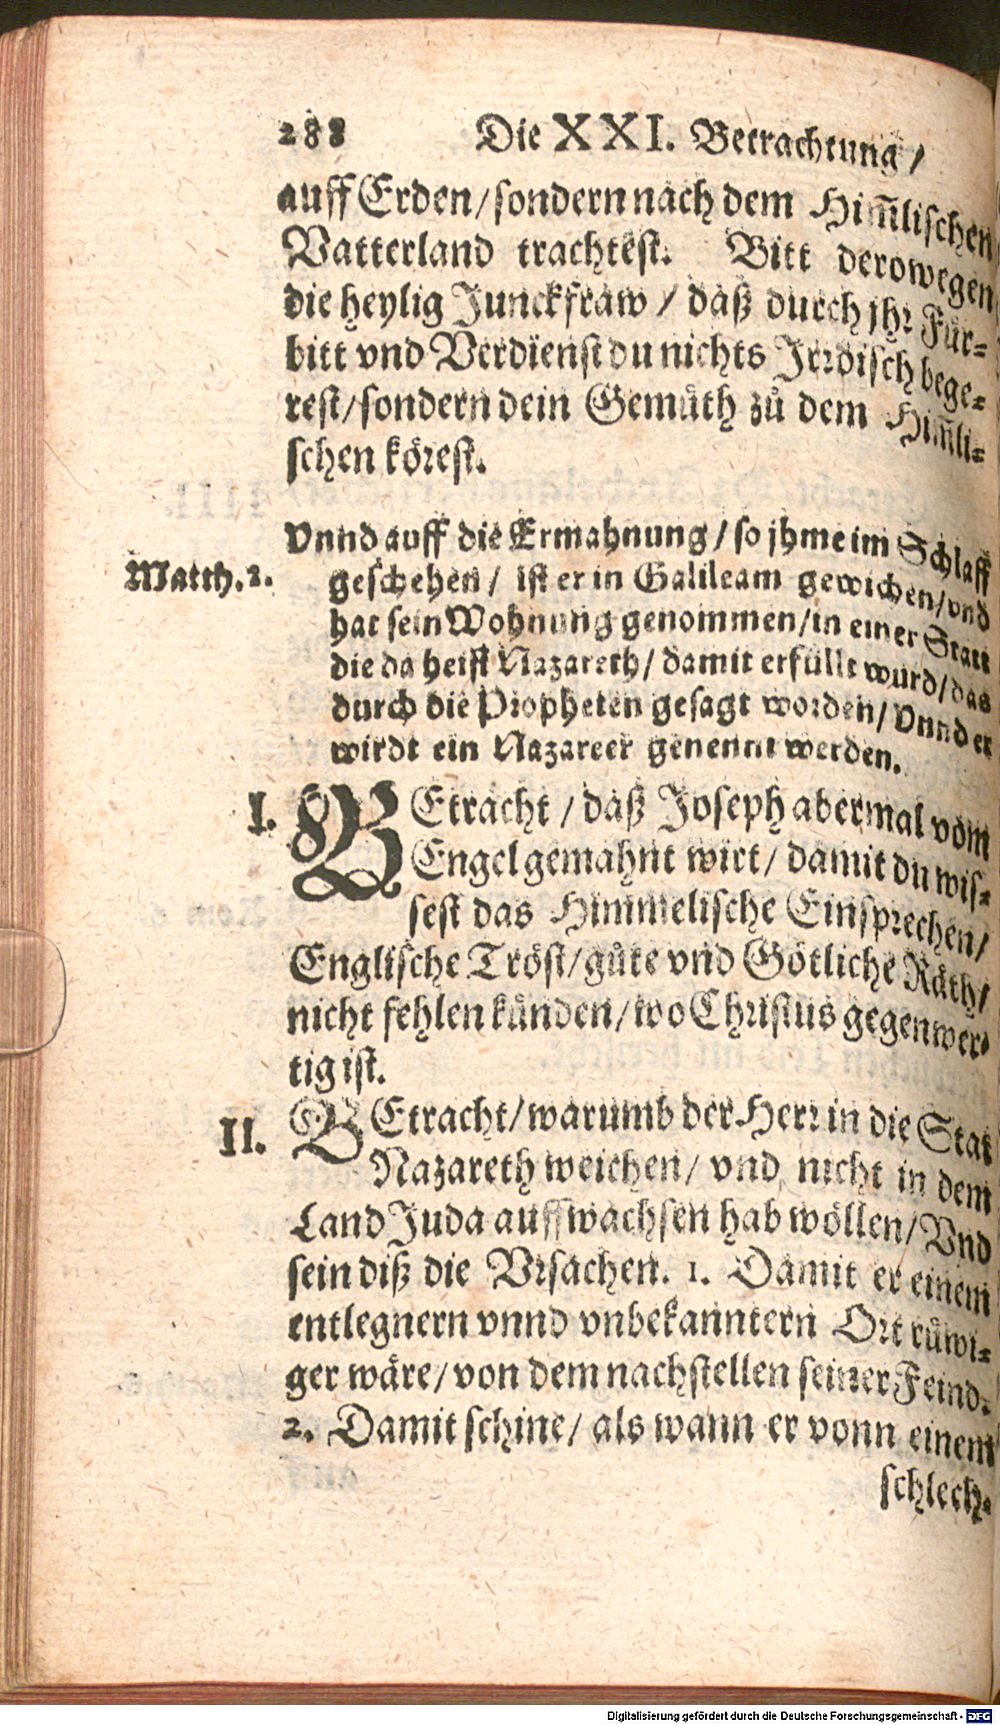 288 Die XXI. Betrachtung /
auff Erden / sondern nach dem Him̃lischen
Vatterland trachtest. Bitt derowegen
die heylig Junckfraw / daß durch jhr Für-
bitt vnd Verdienst du nichts Jrrdisch bege-
rest / sondern dein Gemüth zů dem Him̃li-
schen körest.
Vnnd auff die Ermahnung / so jhme im Schlaff
Matth. 2. geschehen / ist er in Galileam gewichen / vnd
hat sein Wohnung genommen / in einer Statt
die da heist Nazareth / damit erfüllt wurd / das
durch die Propheten gesagt worden / Vnnd er
wirdt ein Nazareer genennt werden.
I. BEtracht / daß Joseph abermal vom
Engel gemahnt wirt / damit du wis-
sest das Himmelische Einsprechen /
Englische Tröst / gůte vnd Götliche Räth /
nicht fehlen künden / wo Christus gegenwer-
tig ist.
II. BEtracht / warumb der Herr in die Stat
Nazareth weichen / vnd nicht in dem
Land Juda auffwachsen hab wöllen / Vnd
sein diß die Vrsachen. 1. Damit er einem
entlegnern vnnd vnbekanntern Ort růwi-
ger wäre / von dem nachstellen seiner Feind.
2. Damit schine / als wann er vonn einem
schlech-
Digitalisierung gefördert durch die Deutsche Forschungsgemeinschaft - DFG